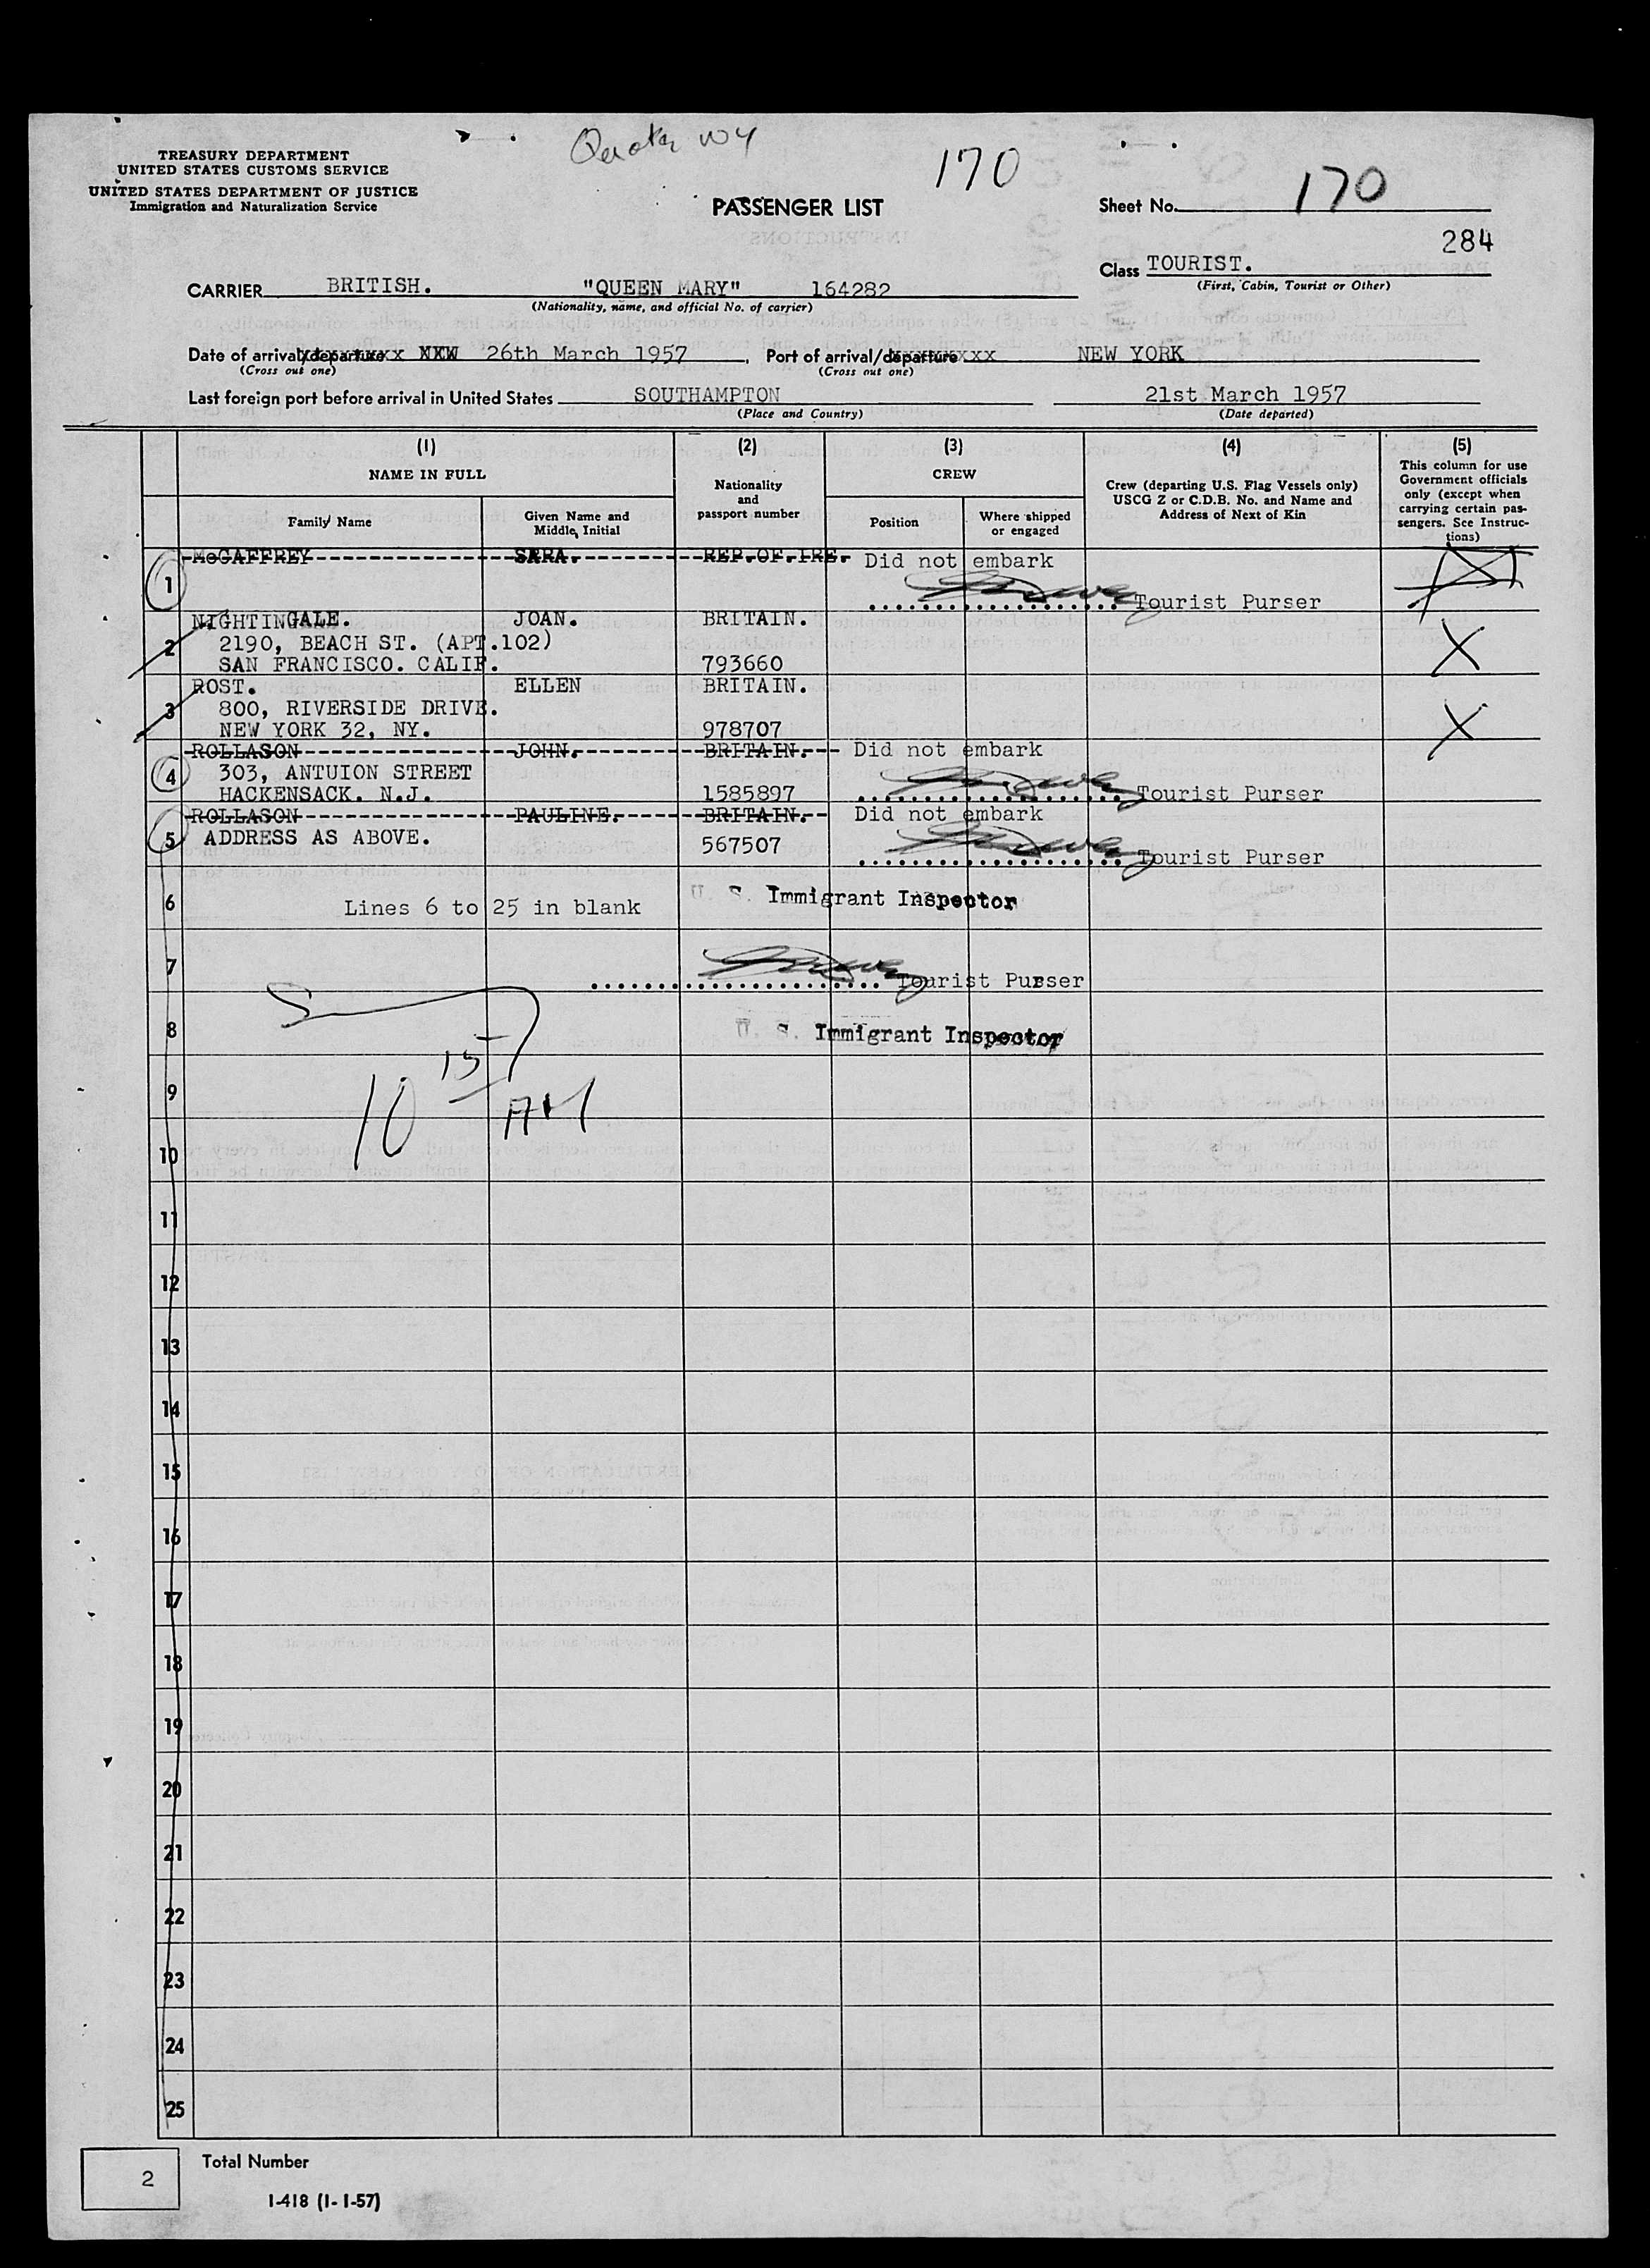 Quota
170
TREASURY DEPARTMENT
UNITED STATES CUSTOMS SERVICE
UNITED STATES DEPARTMENT OF JUSTICE
Immigration and Naturalization Service
PASSENGER LIST
Sheet No. 170
284
Class TOURIST.
(First, Cabin, Tourist or Other)
CARRIER BRITISH. "QUEEN MARY" 164282
(Nationality, name, and official No. of carrier)
Date of arrival/departure 26th March 1957, Port of arrival/departure NEW YORK
(Cross out one) (Cross out one)
Last foreign port before arrival in United States SOUTHAMPTON 21st March 1957
(Place and Country) (Date departed)
(1) (2) (3) (4) (5)
NAME IN FULL
Nationality
and
passport number
CREW
Crew (departing U.S. Flag Vessels only)
USCG Z or C.D.B. No. and Name and
Address of Next of Kin
This column for use
Government officials
only (except when
carrying certain pas-
sengers. See Instruc-
tions)
Family Name
Given Name and
Middle Initial
Position
Where shipped
or engaged
McGAFFREY SARA. REP.OF.IRE. Did not embark
1 Tourist Purser
NIGHTINGALE. JOAN. BRITAIN.
2 2190, BEACH ST. (APT.102)
SAN FRANCISCO. CALIF. 793660
ROST. ELLEN BRITAIN.
3 800, RIVERSIDE DRIVE.
NEW YORK 32, NY. 978707
ROLLASON JOHN. BRITAIN. Did not embark
4 303, ANTUION STREET
HACKENSACK. N.J. 1585897 Tourist Purser
ROLLASON PAULINE. BRITAIN. Did not embark
5 ADDRESS AS ABOVE. 567507 Tourist Purser
6 Lines 6 to 25 in blank U. S. Immigrant Inspector
7 Tourist Purser
8 U. S. Immigrant Inspector
9 10 15 AM
10
11
12
13
14
15
16
17
18
19
20
21
22
23
24
25
2 Total Number
I-418 (1-1-57)